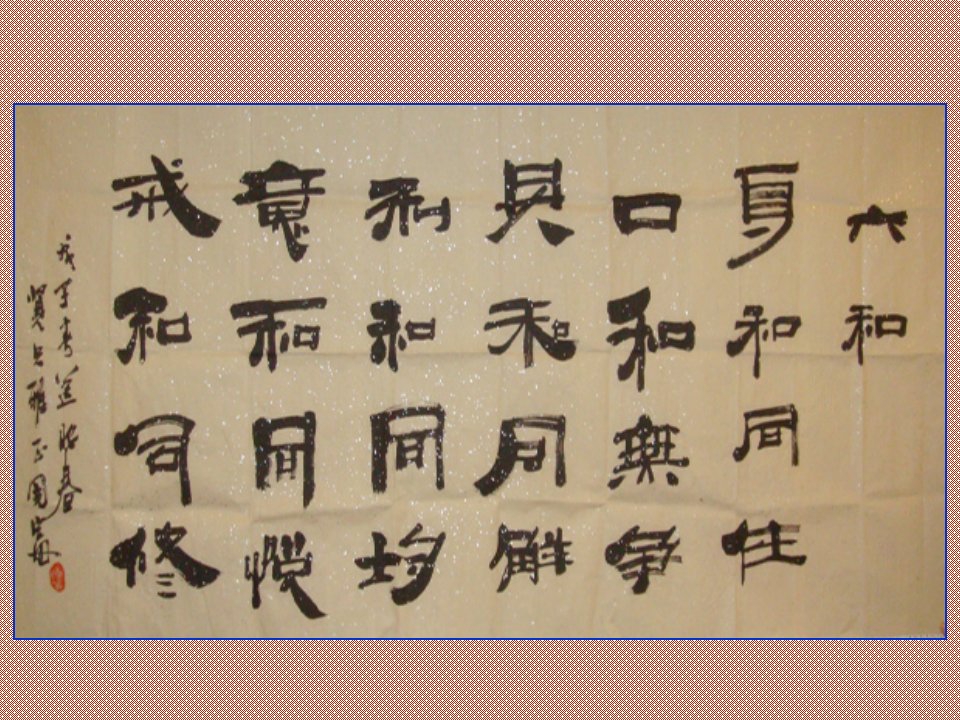 六和
身和同住
口和無争
見和同解
利和同均
意和同悦
戒和同修
戊子
雅正